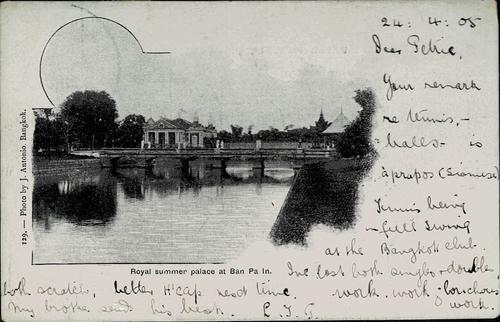 24: 4: 05
Dear Petrie,
Your remark
re tennis, -
balls - is
àpropos (Siamese)
Tennis being
in full swing
at the Bangkok club.
I've lost both singles & doubles
both scratch, better H'cap next time.
work. work.
work.
My brother sends his best. C. J. G.
129. — Photo by J. Antonio. Bangkok.
Royal summer palace at Ban Pa In.